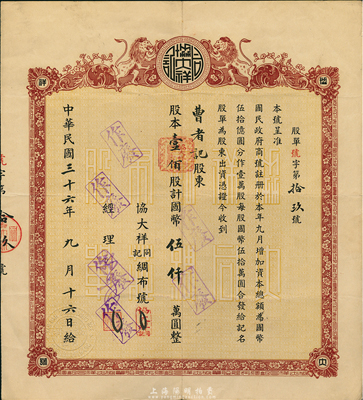 協大祥
祥
協
股單號字第拾玖號
本號呈准
國民政府商號註册於本年九月增加資本總額為國幣
伍拾億圓分作壹萬股每股國幣伍拾萬圓合發給記名
股單為股東出資憑證今收到
曹者記股東
股本壹佰股計國幣伍仟萬圓整
協大祥同記綢布號
經理
中華民國三十六年九月十六日給
作廢
作廢
作廢
作廢
號字第拾玖號
大
上海陽明拍賣